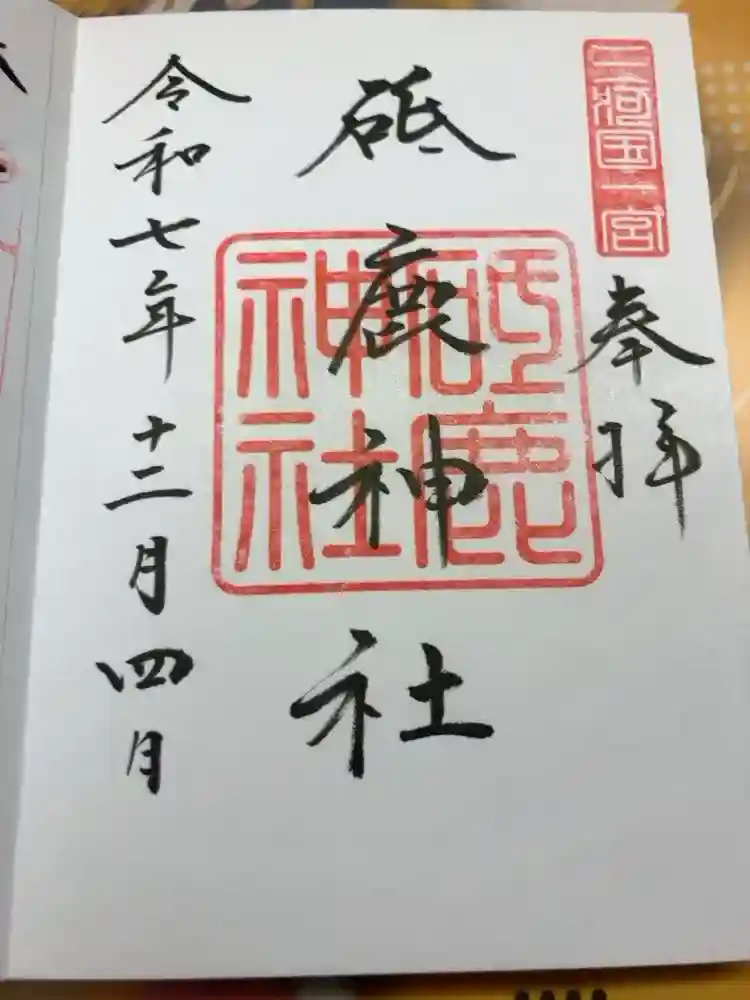 三河国一宮
奉拝
砥鹿神社
砥鹿神社
令和七年十二月四月